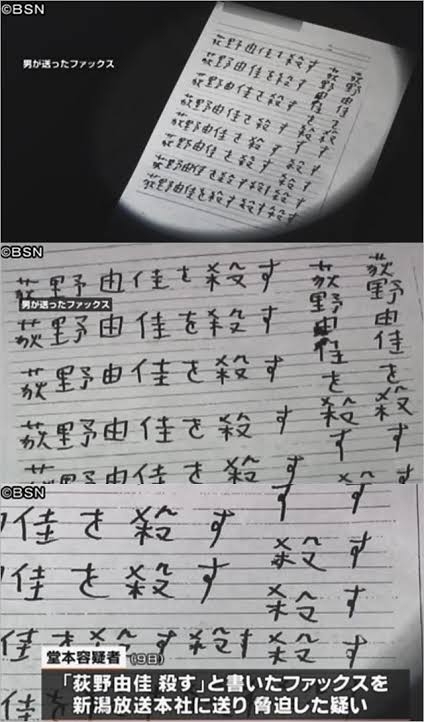 ©BSN
男が送ったファックス
荻野由佳を殺す
荻野由佳を殺す
荻野由佳を殺す
荻野由佳を殺す
荻野由佳を殺す
荻野由佳を殺す
荻野由佳を殺す殺す殺す
©BSN
男が送ったファックス
荻野由佳を殺す
荻野由佳を殺す
荻野由佳を殺す
荻野由佳を殺す
荻野由佳を殺す
荻野由佳を殺す
荻野由佳を殺す
©BSN
佳を殺す
佳を殺す
殺す
殺す
殺す
堂本容疑者(9日)
「荻野由佳 殺す」と書いたファックスを
新潟放送本社に送り 脅迫した疑い